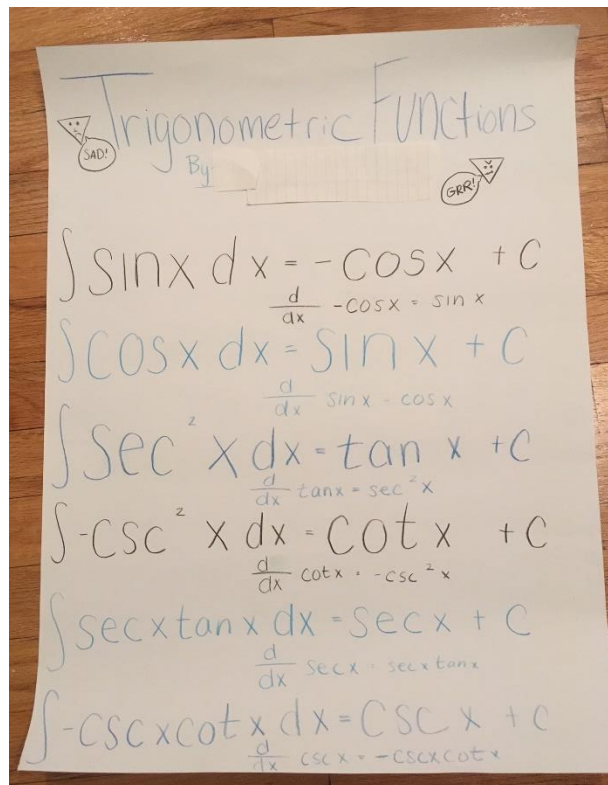 Trigonometric Functions
SAD!
By
GRR!
∫sinx dx = -cosx + C
d/dx -cosx = sin x
∫cosx dx = sin x + C
d/dx sin x = cos x
∫sec² x dx = tan x + C
d/dx tanx = sec²x
∫-csc² x dx = cot x + C
d/dx cotx = -csc²x
∫secxtanx dx = secx + C
d/dx secx = secxtanx
∫-cscxcotx dx = csc x + C
d/dx cscx = -cscxcotx